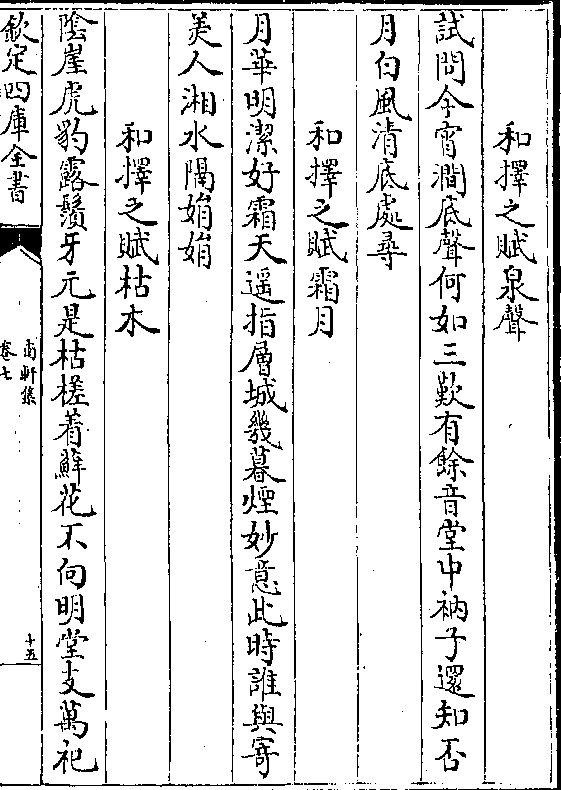 和擇之賦泉聲
試問今宵澗底聲何如三歎有餘音堂中衲子還知否
月白風清底處尋
和擇之賦霜月
月華明潔好霜天遥指層城幾暮煙妙意此時誰與寄
美人湘水隔娟娟
和擇之賦枯木
陰崖虎豹露鬚牙元是枯槎着蘚花不向明堂支萬祀
欽定四庫全書
南軒集
卷七
十五